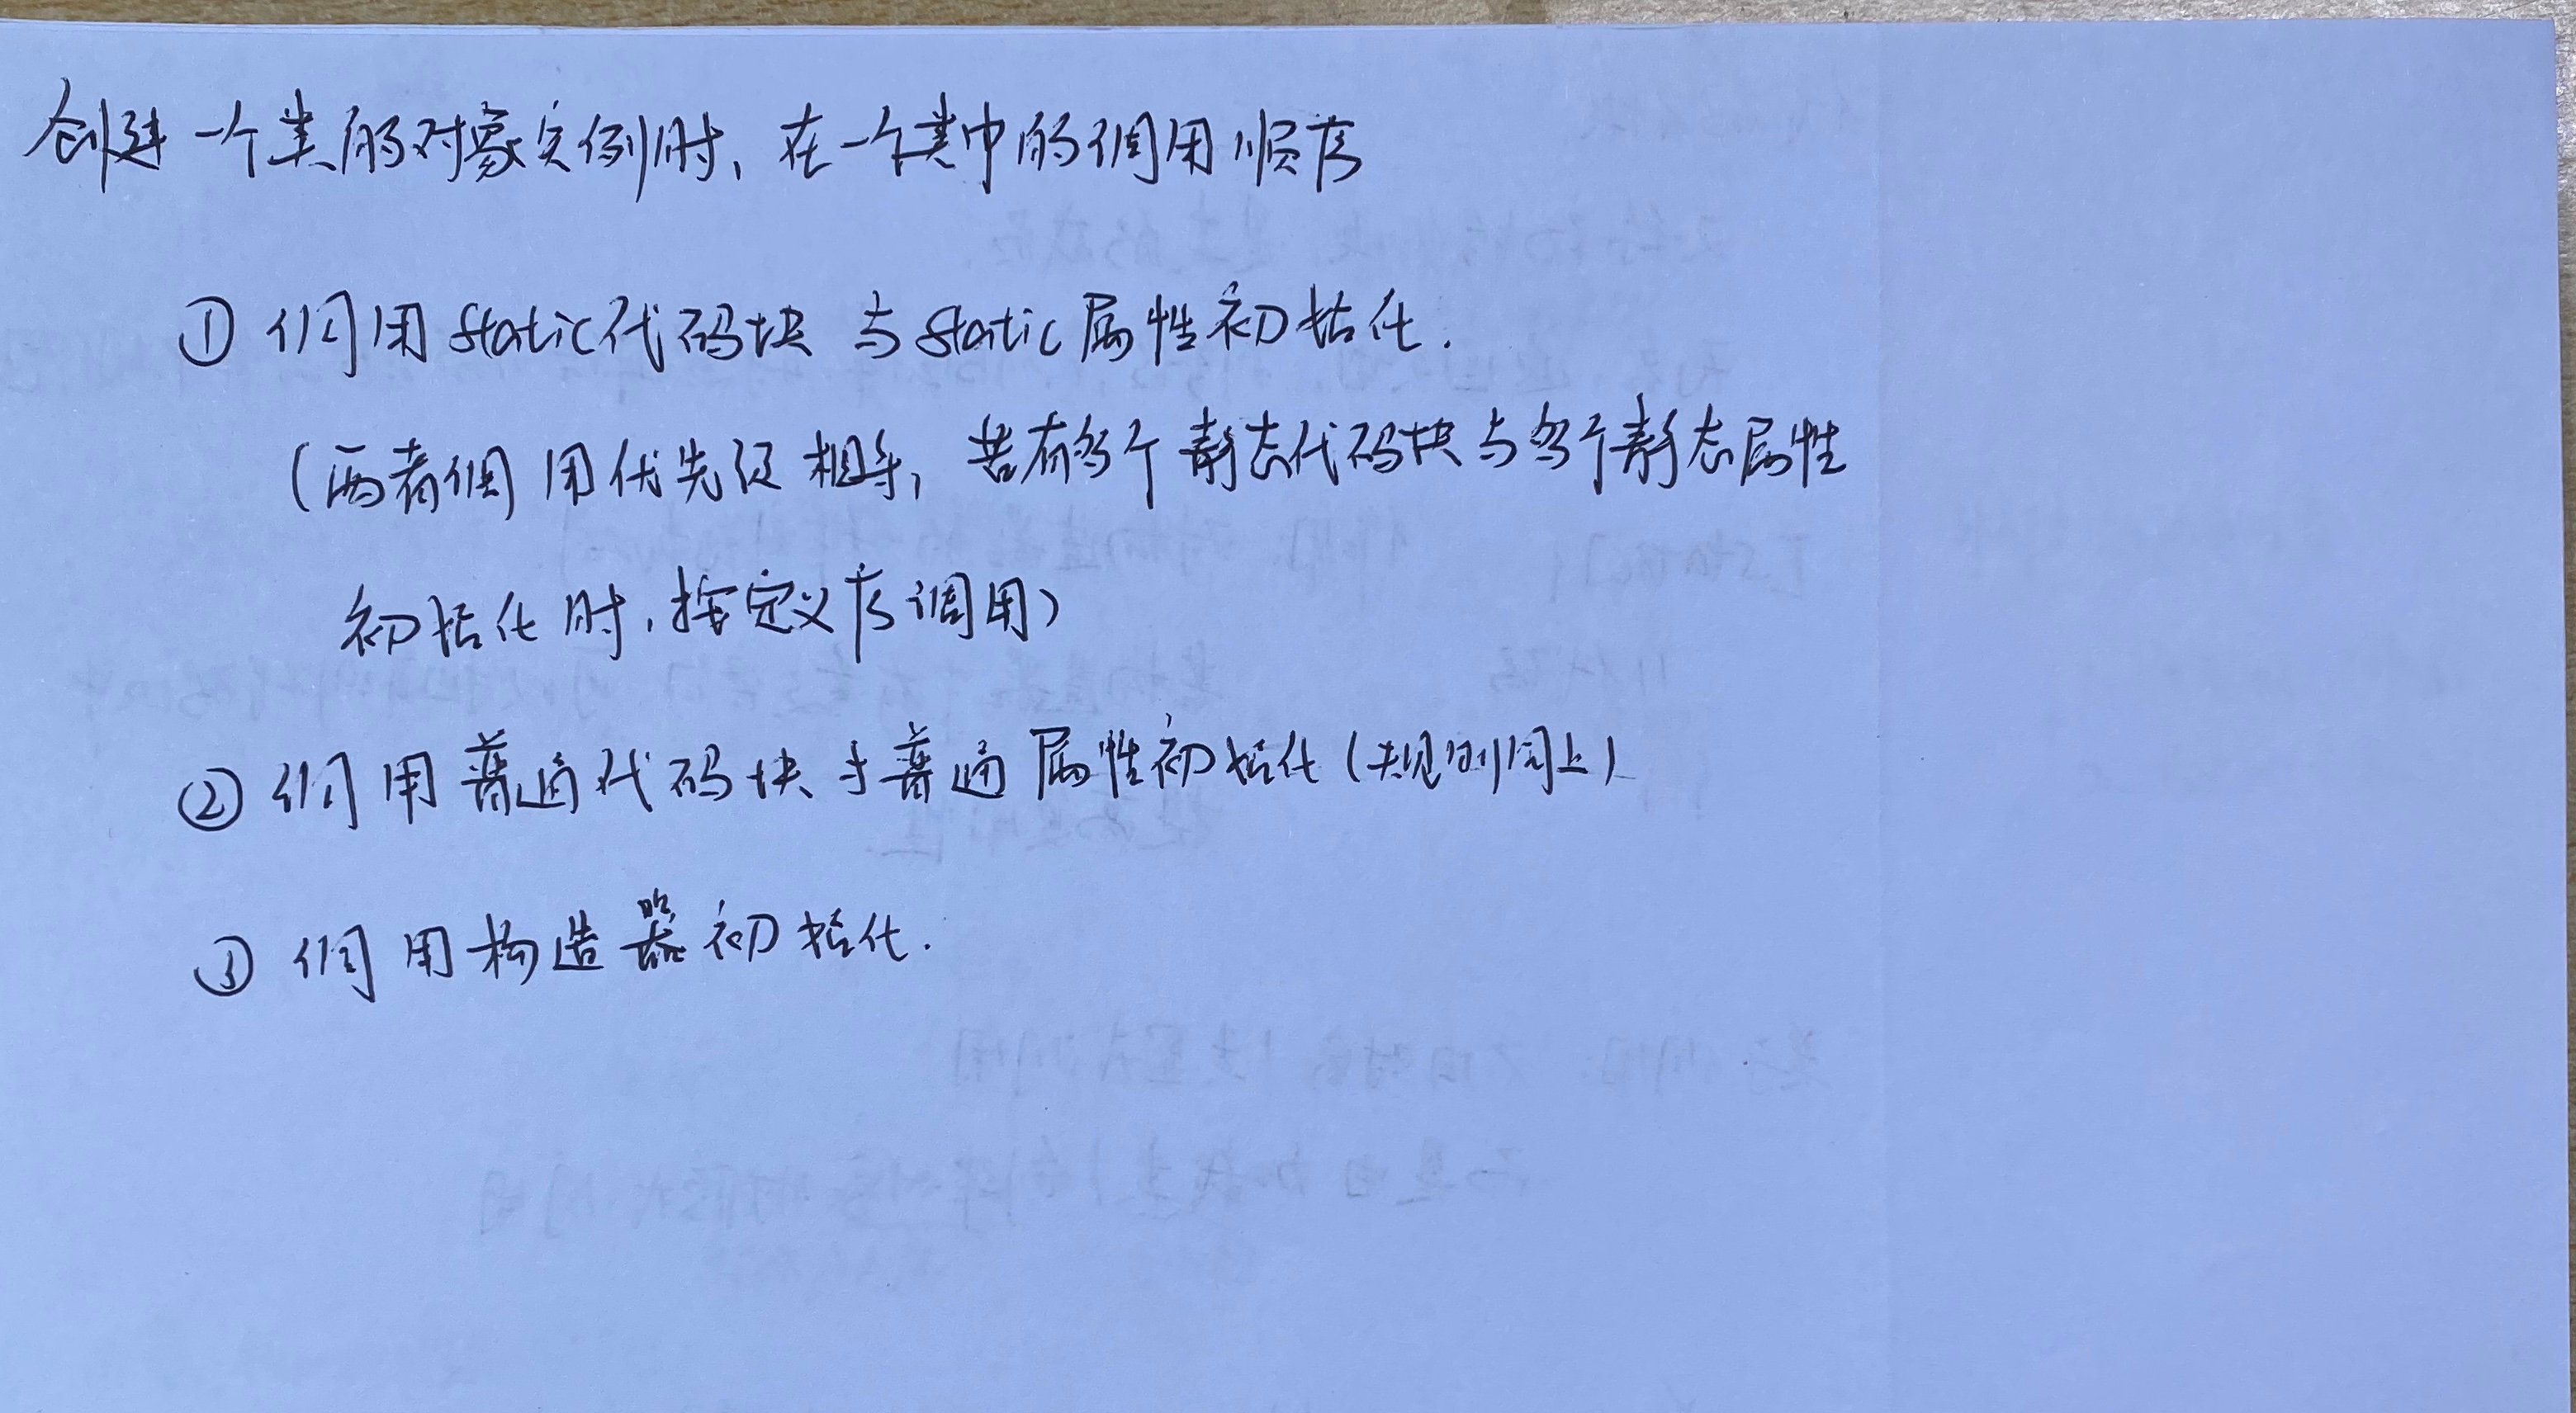 创建一个类的对象实例时,在一个类中的调用顺序
① 调用static代码块与static属性初始化.
(两者调用优先级相等,若有多个静态代码块与多个静态属性
初始化时,按定义序调用)
② 调用普通代码块与普通属性初始化(规则同上)
③ 调用构造器初始化.